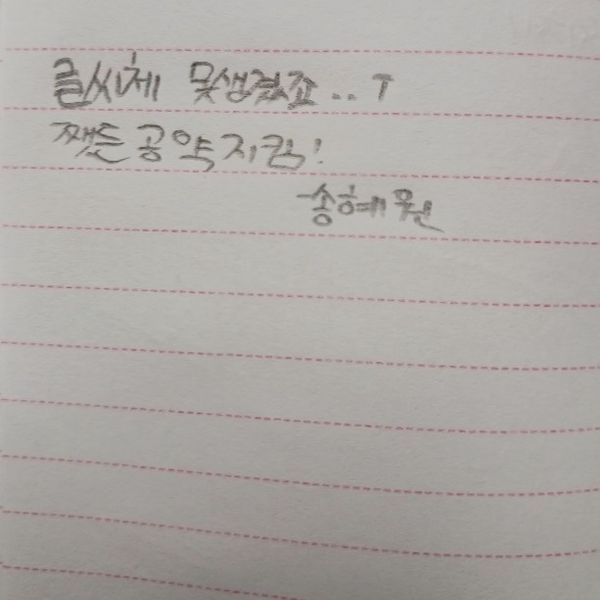 글씨체 못생겼죠..ㅜ
쨋든 공약지킴!
-송혜원